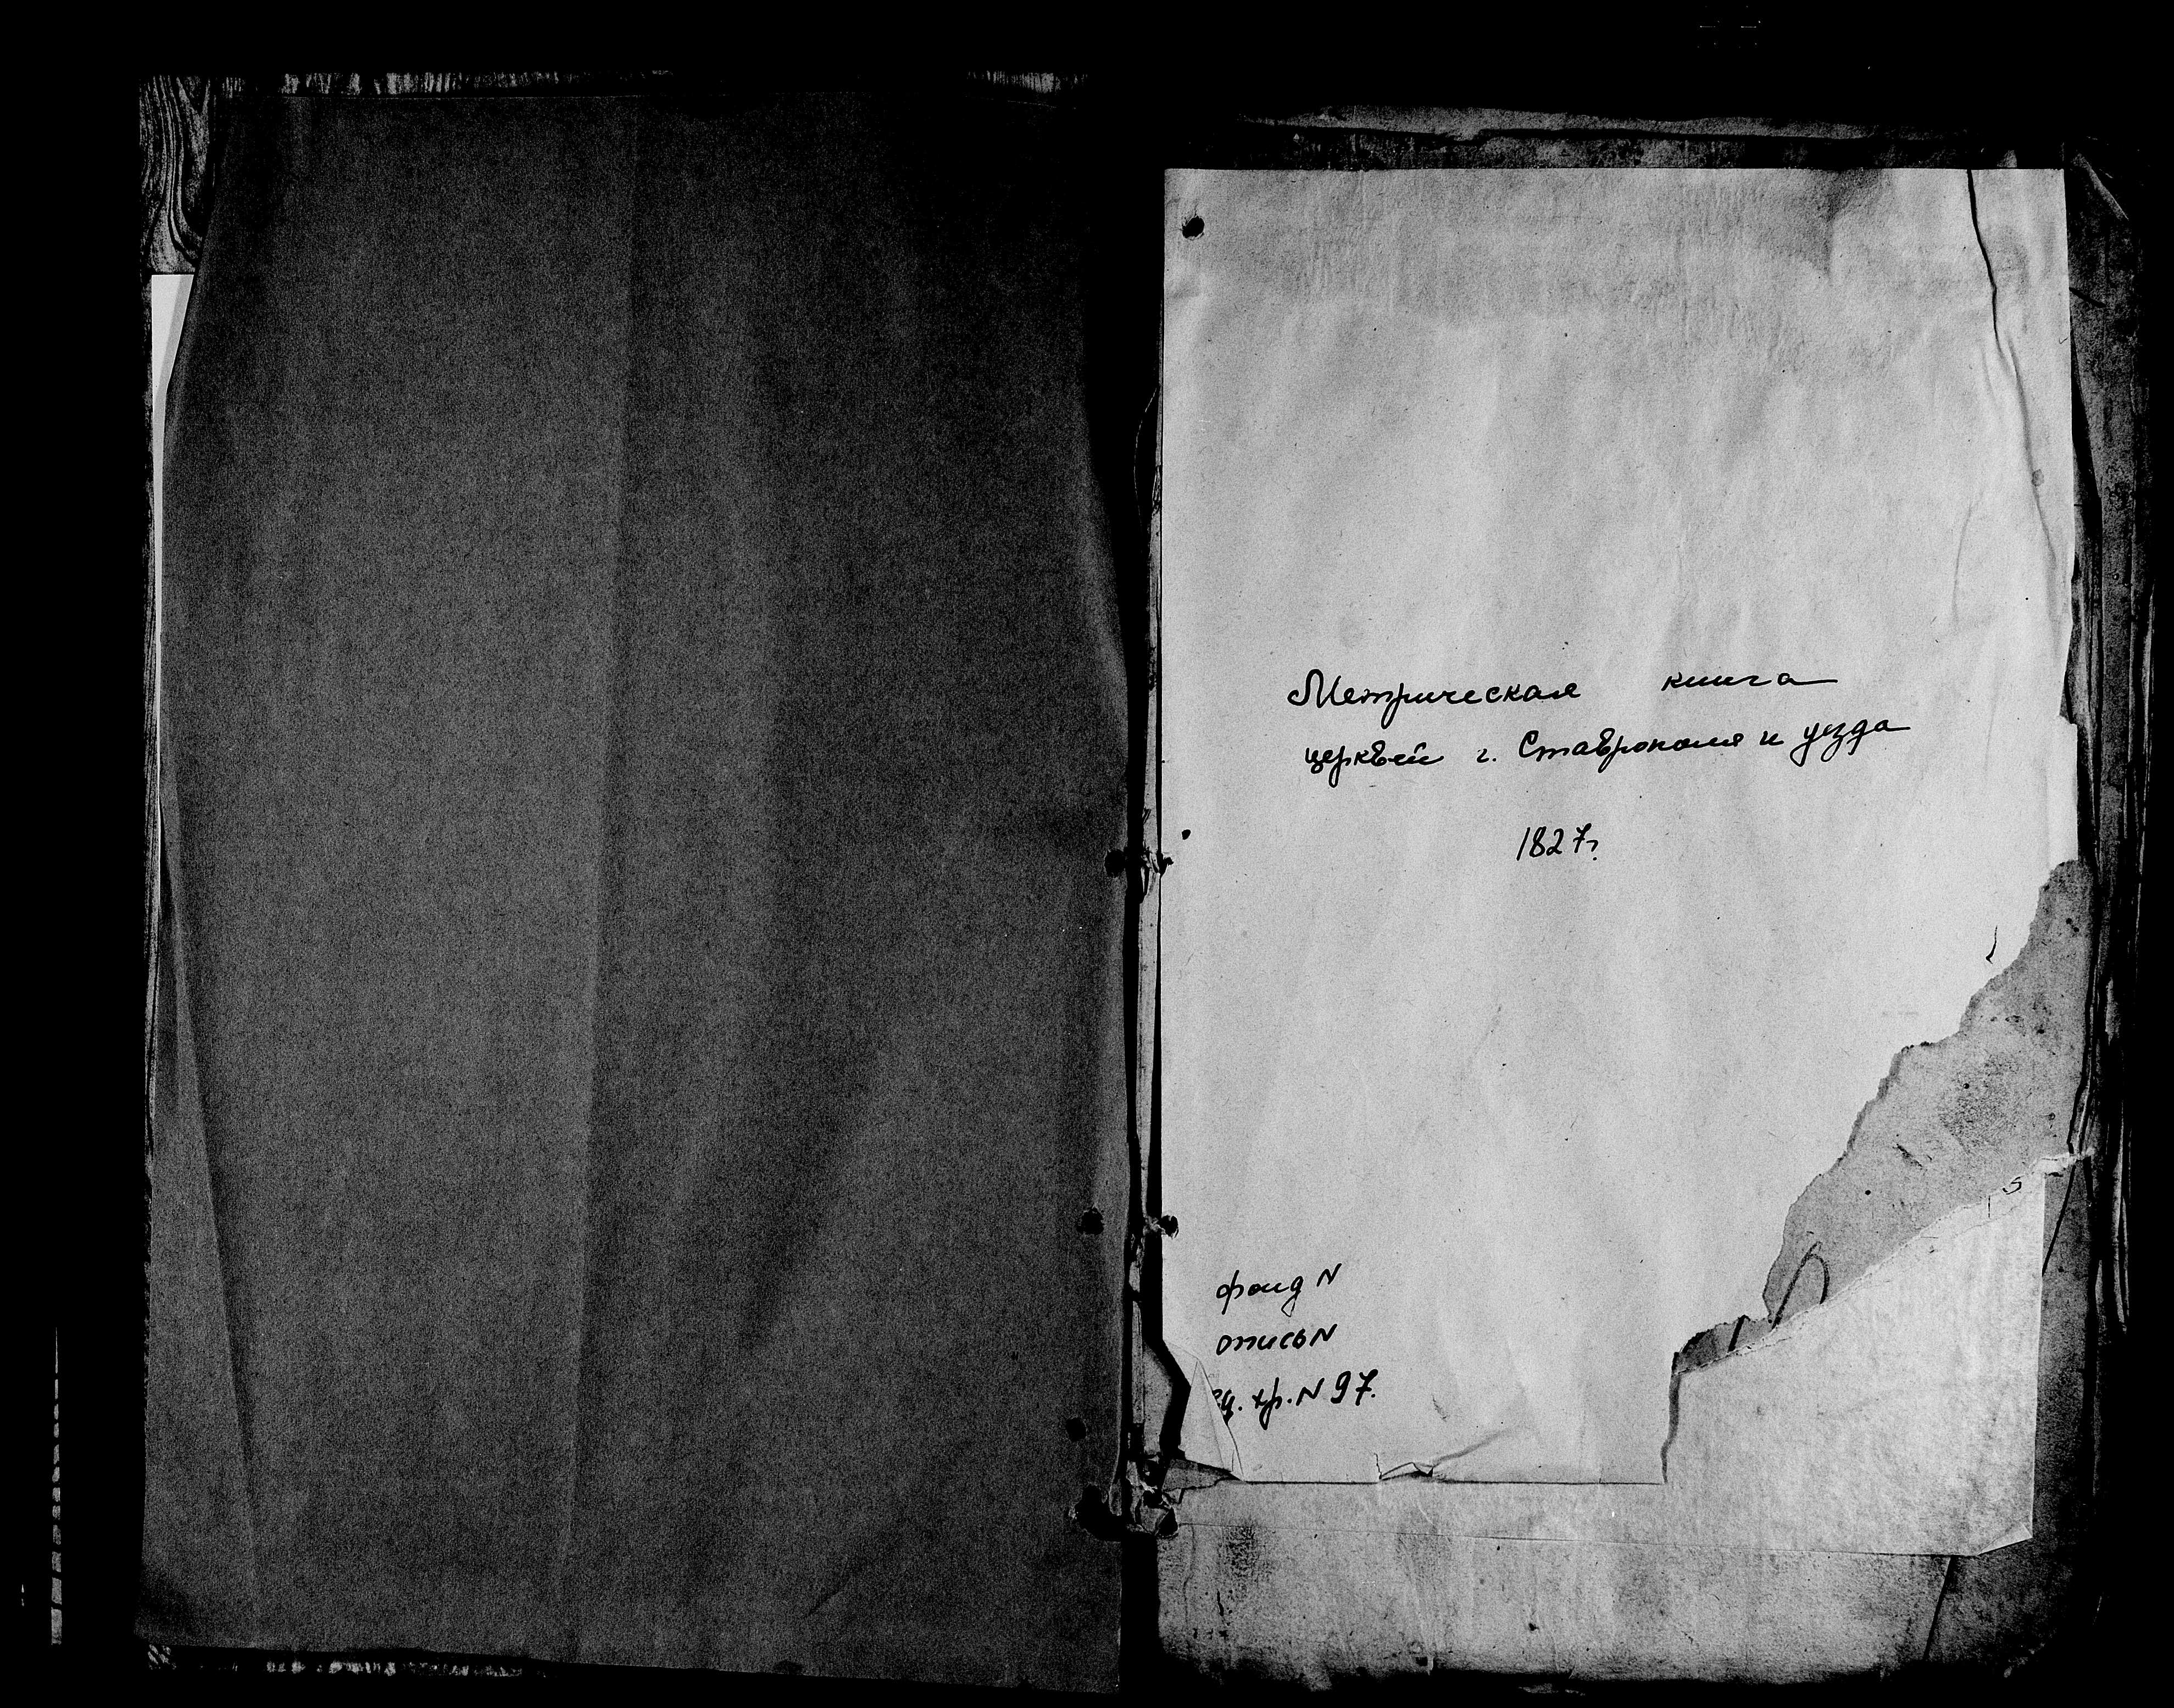 Метрическая книга
церквей г. Ставрополя и уезда
1827г.
фонд N
опись N
ед. хр. N 97.